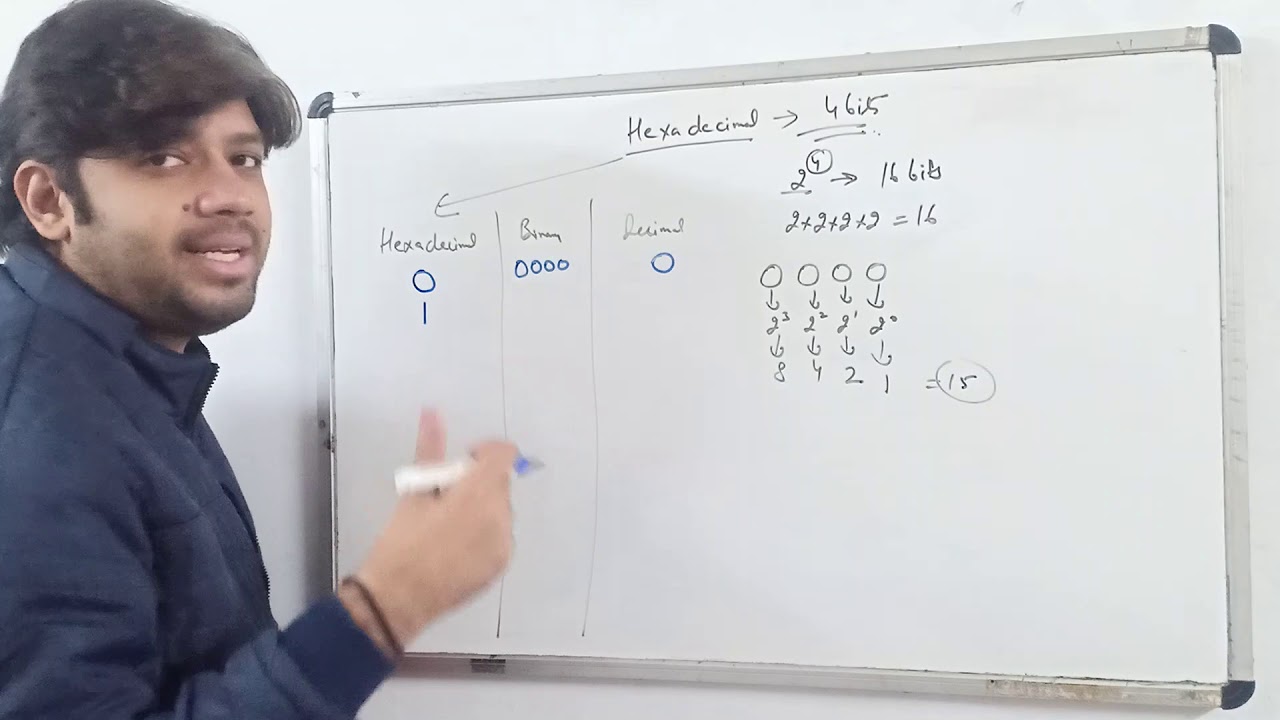 Hexadecimal → 4 bits
2④ → 16 bits
2×2×2×2 = 16
Hexadecimal Binary Decimal
0 0000 0
1
0 0 0 0
↓ ↓ ↓ ↓
2³ 2² 2¹ 2⁰
↓ ↓ ↓ ↓
8 4 2 1 = 15